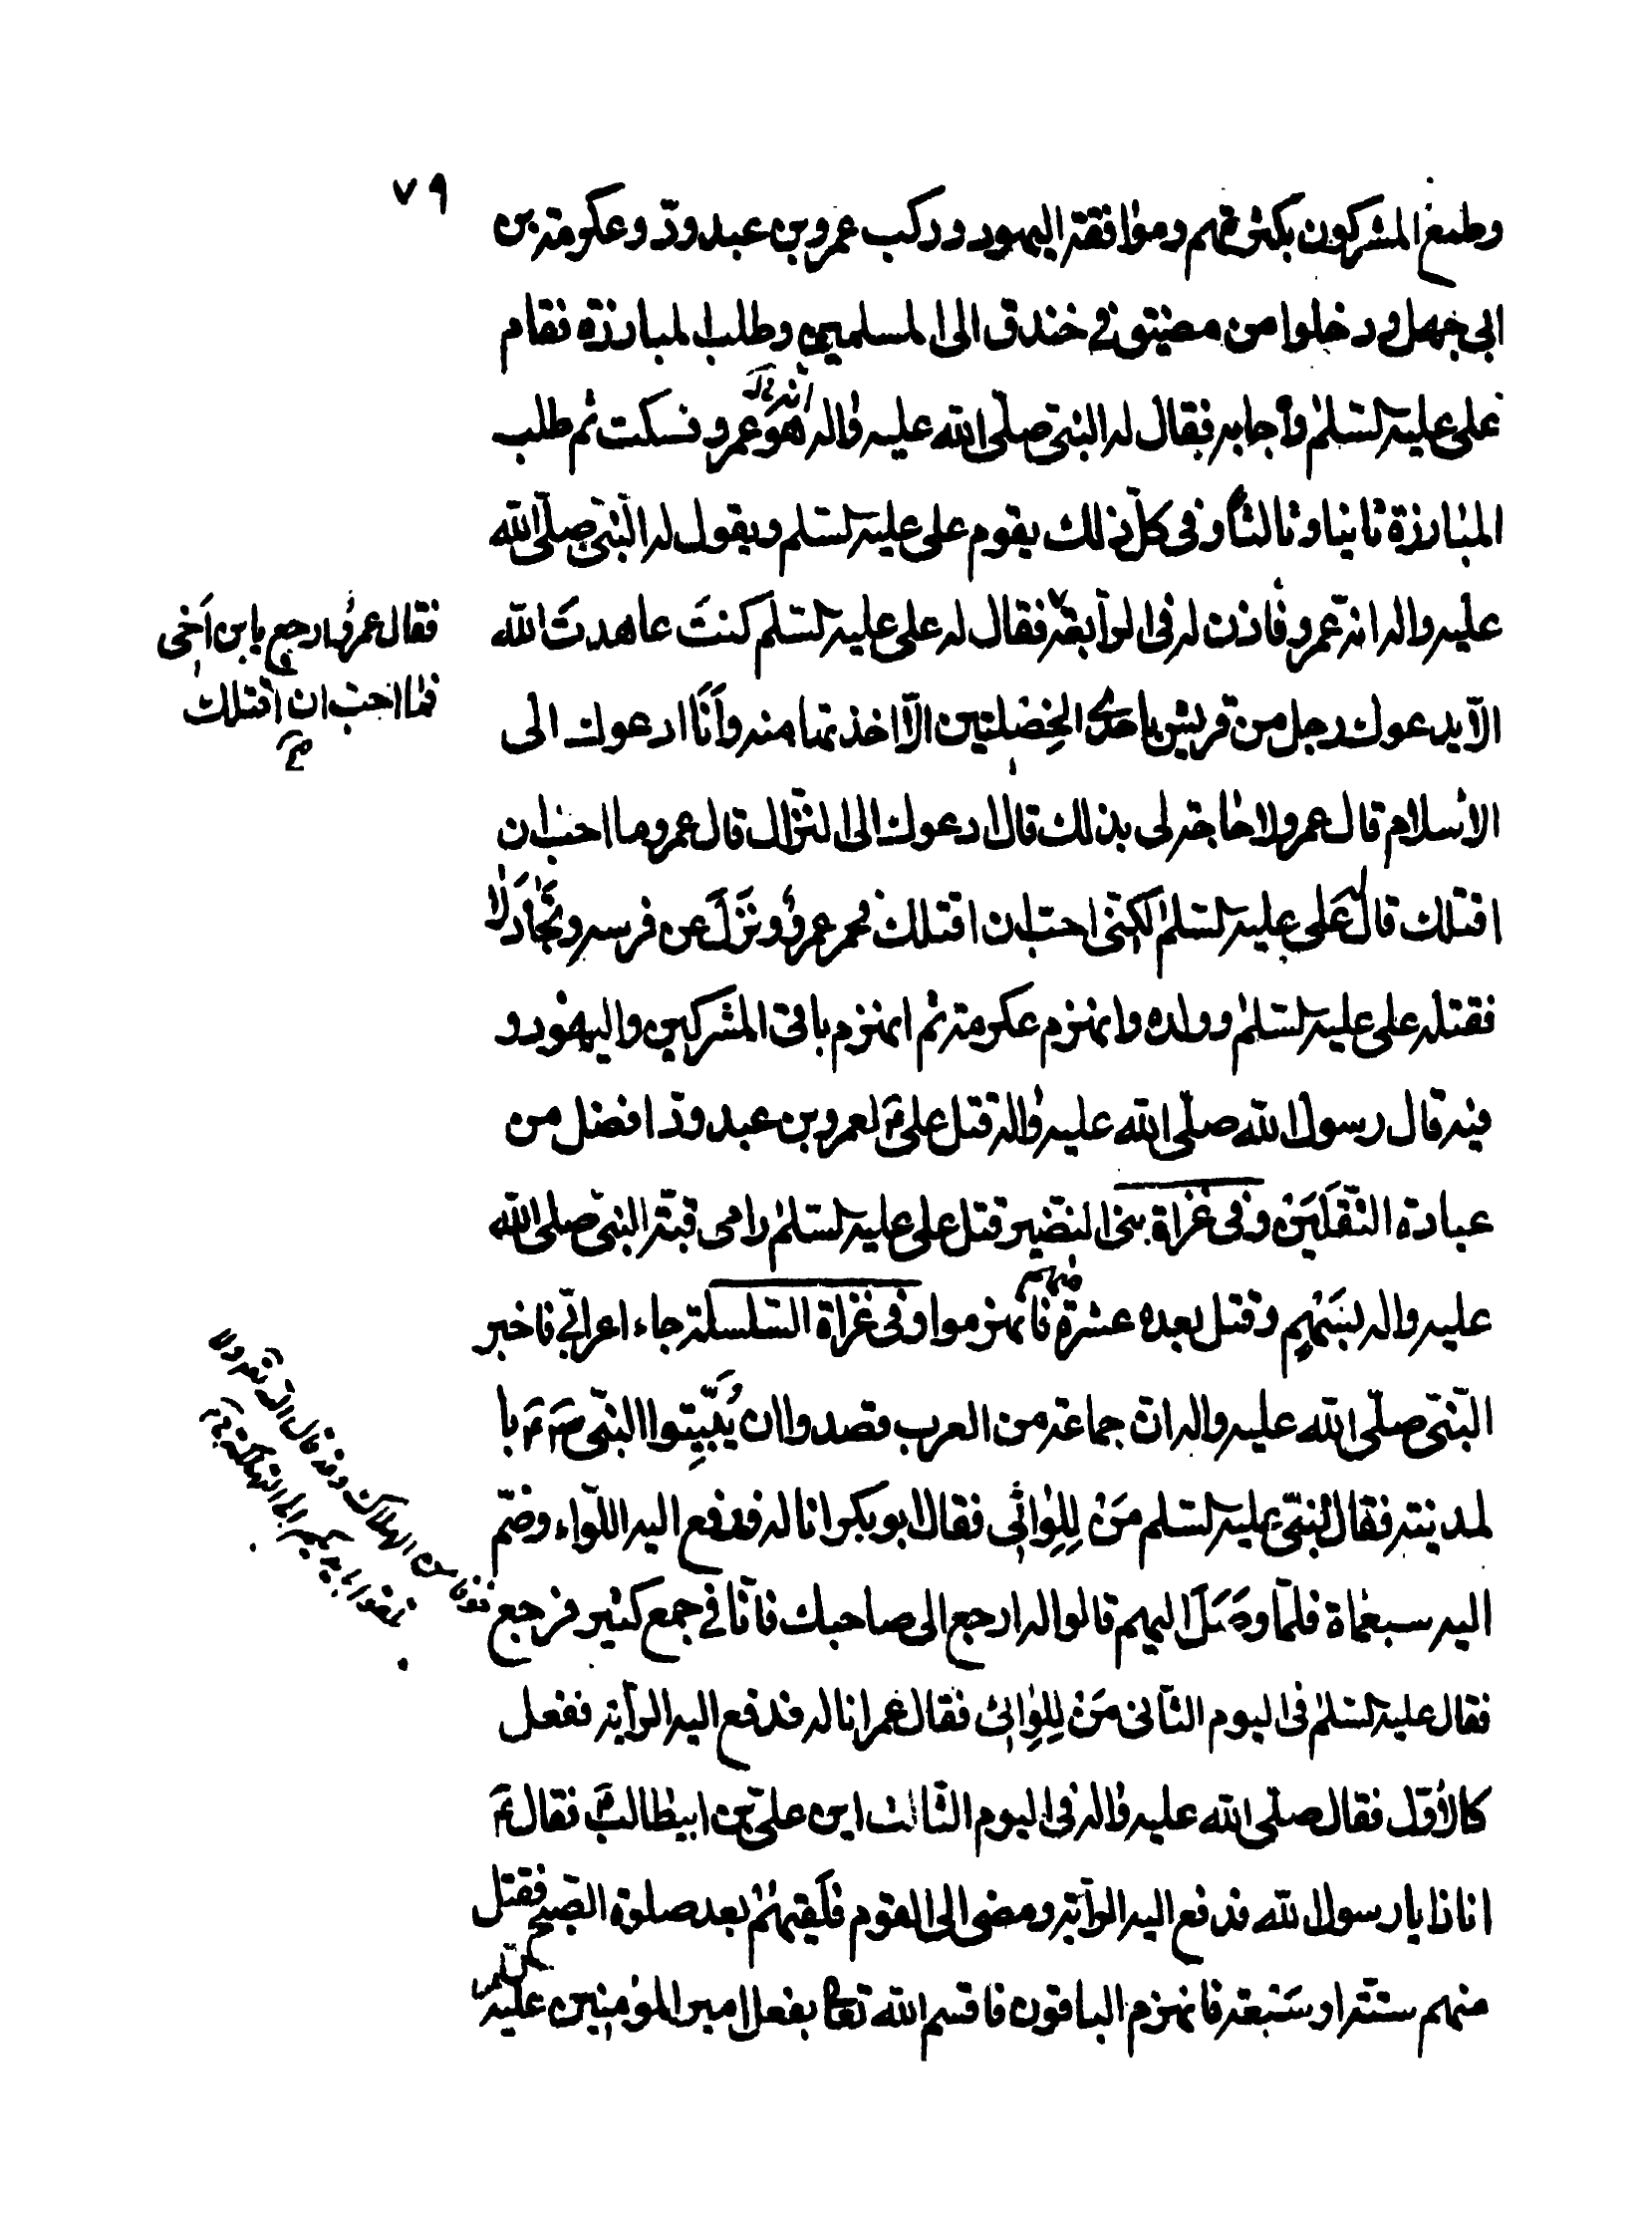 ٧٩
وطمع المشركون بكثرتهم وموافقة اليهود وركب عمرو بن عبدودّ وعكرمة بن
ابى جهل ودخلوا من مضيق فى خندق الى المسلمين وطلب المبارزة فقام
على عليه السّلم واجابه فقال له النبى صلّى الله عليه واله انه هو عمرو فسكت ثم طلب
المبارزة ثانيا وثالثا وفى كلّ ذلك يقوم على عليه السّلم ويقول له النّبى صلّى الله
عليه واله انه عمرو فاذن له فى الرّابعة فقال له على عليه السّلم كنتَ عاهدتَ الله
الّا يدعوك رجل من قريش باحدى الخصلتين الّا اخذتها منه وانَا ادعوك الى
الاسلام قال عمرو لا حاجة لى بذلك قال ادعوك الى النّزال قال عمرو ما احب ان
اقتلك قال على عليه السّلم لكنّى احبّ ان اقتلك فحمر عمرو ونَزَلَ عن فرسه وتجَادَلا
فقتله على عليه السّلم وولده وانهزم عكرمة ثم انهزم باقى المشركين واليهود و
فيه قال رسول الله صلّى الله عليه واله قتل على ع لعمرو بن عبدودّ افضل من
عبادة الثّقلَين وفى غزاة بنى النضير قتل على عليه السّلم رامى قبّة النبى صلى الله
عليه واله بسَهْمٍ وقتل بعده عشرة منهم فانهزموا وفى غزاة السّلسلة جاء اعرابّى فاخبر
النّبّى صلّى الله عليه واله انّ جماعة من العرب قصدوا ان يُبَيّتوا النّبّى ص ع با
لمدينة فقال النّبّى عليه السّلم مَنْ لِلِوائى فقال ابو بكر انا له فدفع اليه اللّواء وضمّ
اليه سبعماة فلمّا وصَلَ اليهم قالوا له ارجع الى صاحبك فانّا فى جمع كثير فرجع
فقال عليه السّلم فى اليوم الثّانى مَنْ لِلِوائى فقال عمر انا له فدفع اليه الرّاية ففعل
كالاوّل فقال صلّى الله عليه واله فى اليوم الثّالث اين علىّ بن ابيطالب فقال ع
انا ذا يا رسول الله فدفع اليه الرّاية ومضى الى القوم فلَقيهُمْ بعد صلوة الصّبح فقتل
منهم ستّة او سَبْعة فانهزم الباقون فاقسم الله تعا بفعل امير المؤمنين عليه السلم
فقال عمرو ارجع يا بن اَخى
فما احب ان اقتلك
صح
خوفا من الهلاك وقد قال الله تعه ولا
تلقوا بايديكم الى التهلكة